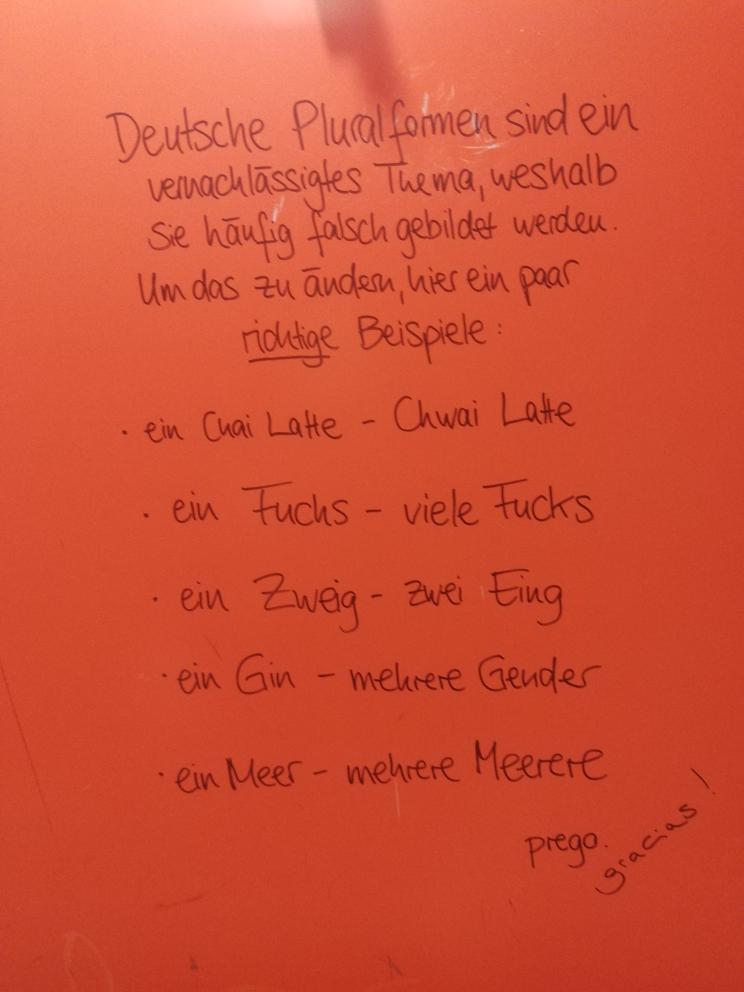 Deutsche Pluralformen sind ein
vernachlässigtes Thema, weshalb
sie häufig falsch gebildet werden.
Um das zu ändern, hier ein paar
richtige Beispiele:
· ein Chai Latte - Chwai Latte
· ein Fuchs - viele Fucks
· ein Zweig - zwei Eing
· ein Gin - mehrere Gender
· ein Meer - mehrere Meerere
prego.
gracias!